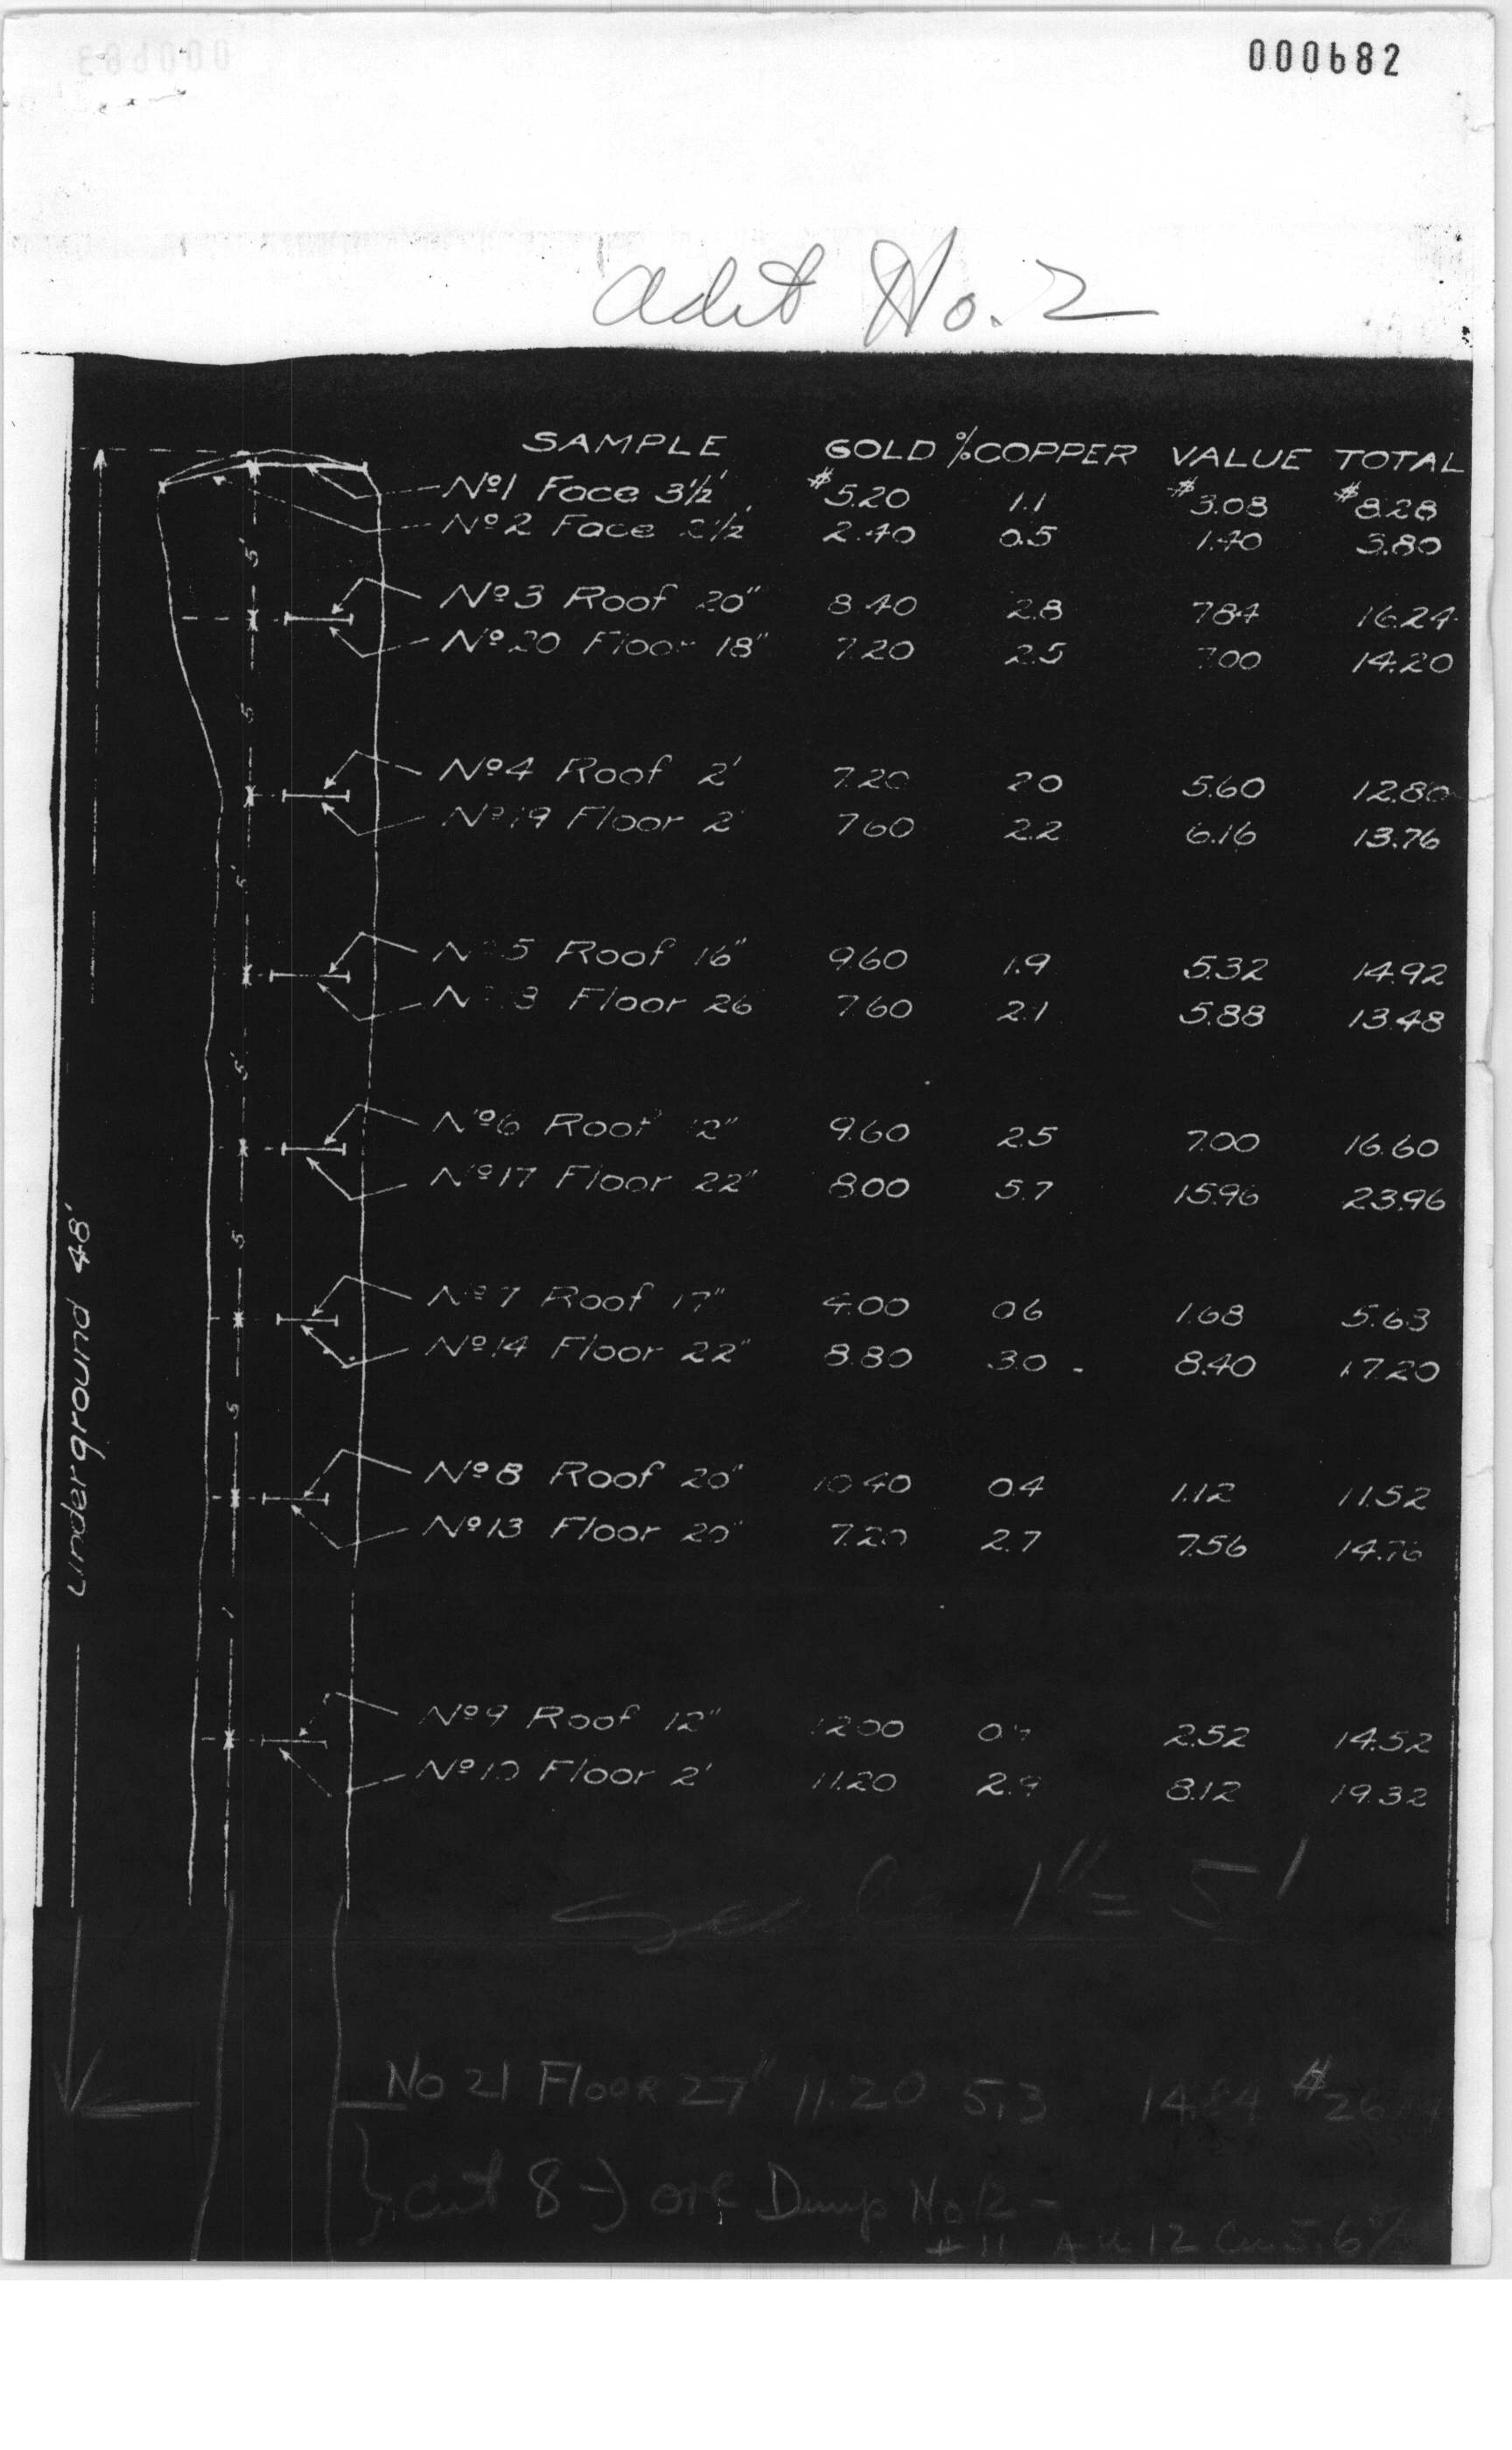 000682
Adit No. 2
SAMPLE GOLD % COPPER VALUE TOTAL
Nº1 Face 3½' $5.20 1.1 $3.08 $8.28
Nº2 Face 2½' 2.40 0.5 1.40 3.80
5'
Nº3 Roof 20" 8.40 2.8 7.84 16.24
Nº20 Floor 18" 7.20 2.5 7.00 14.20
5'
Nº4 Roof 2' 7.20 2.0 5.60 12.80
Nº19 Floor 2' 7.60 2.2 6.16 13.76
5'
Nº5 Roof 16" 9.60 1.9 5.32 14.92
Floor 26 7.60 2.1 5.88 13.48
5'
Nº6 Roof 12" 9.60 2.5 7.00 16.60
Nº17 Floor 22" 8.00 5.7 15.96 23.96
5'
Nº7 Roof 17" 4.00 0.6 1.68 5.68
Nº14 Floor 22" 8.80 3.0 8.40 17.20
5
Nº8 Roof 20" 10.40 0.4 1.12 11.52
Nº13 Floor 20" 7.20 2.7 7.56 14.76
Underground 48'
Nº9 Roof 12" 12.00 2.52 14.52
Nº10 Floor 2' 11.20 2.9 8.12 19.32
1" = 5'
No 21 Floor 27" 11.20 5.3 14.84 $26
Cut 8 ore Dump No 12 -
# 11 Au 12 Cu 5.6%